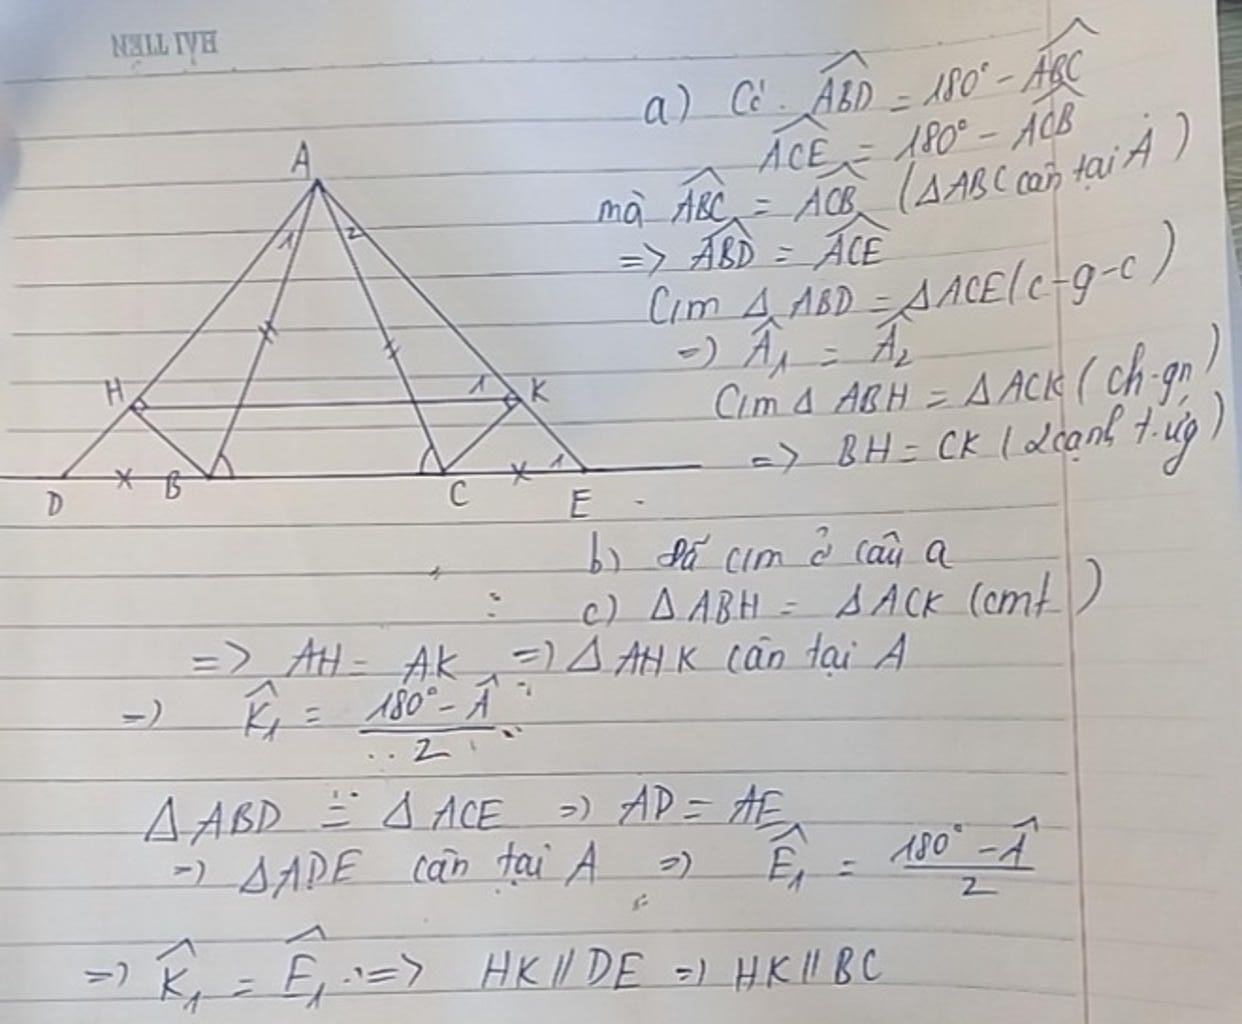 HẢI TIẾN
a) Có \widehat{ABD} = 180° - \widehat{ABC}
\widehat{ACE} = 180° - \widehat{ACB}
mà \widehat{ABC} = \widehat{ACB} (ΔABC cân tại A)
=> \widehat{ABD} = \widehat{ACE}
C/m Δ ABD = ΔACE (c-g-c)
=> \widehat{A}_1 = \widehat{A}_2
C/m Δ ABH = ΔACK (ch-gn)
=> BH = CK (2 cạnh t.ứg)
A
1 2
H 1 K
1
D B C E
b) Đã c/m ở câu a
c) ΔABH = ΔACK (cmt)
=> AH = AK => ΔAHK cân tại A
=> \widehat{K}_1 = \frac{180° - \widehat{A}}{2}
ΔABD = ΔACE => AD = AE
=> ΔADE cân tại A => \widehat{E}_1 = \frac{180° - \widehat{A}}{2}
=> \widehat{K}_1 = \widehat{E}_1 => HK // DE => HK // BC